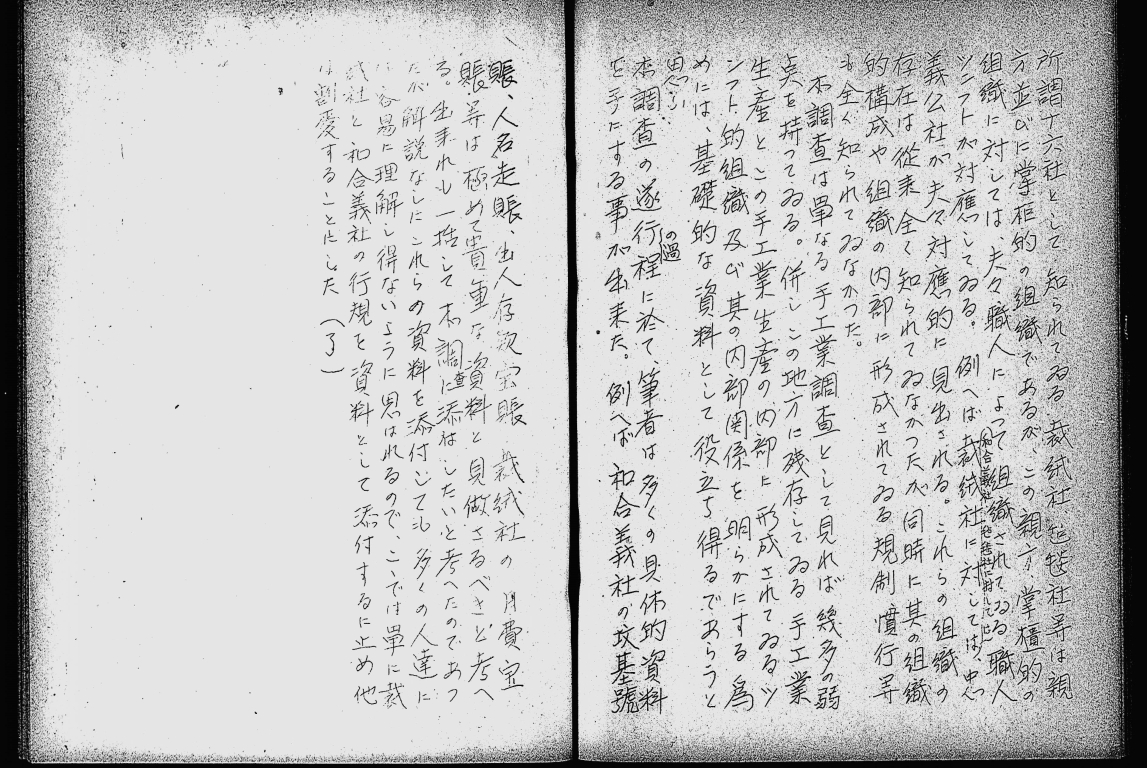 所謂十六社として知られてゐる裁絨社毡毯社等は親
方並びに掌柜的の組織であるが、この親方掌櫃的の
組織に対しては、夫々職人によつて組織されてゐる職人
ツンフトが対應してゐる。例へば裁絨社に対しては、
和合義社
義公社が夫々対應的に見出される。これらの組織の
存在は從来全く知られてゐなかつたが同時に其の組織
的構成や組織の内部に形成されてゐる規制慣行等
も全く知られてゐなかつた。
本調査は單なる手工業調査として見れば幾多の弱
点を持つてゐる。併しこの地方に残存してゐる手工業
生産とこの手工業生産の内部に形成されてゐるツ
ンフト的組織及び其の内部関係を明らかにする為
めには、基礎的な資料として役立ち得るであらうと
思ふ。
本調査の遂行の過程に於て、筆者は多くの具体的資料
を手にする事が出来た。例へば和合義社の坟基號
賬、人名走賬、出入存欵宝賬、裁絨社の月費宝
賬等は極めて貴重な資料と見做さるべきと考へ
る。出来れも一括して本調査に添付したいと考へたのであつ
たが解説なしにこれらの資料を添付しても多くの人達に
容易に理解し得ないように思はれるので、こゝでは單に裁
絨社と和合義社の行規を資料として添付するに止め他
は割愛することにした（了）